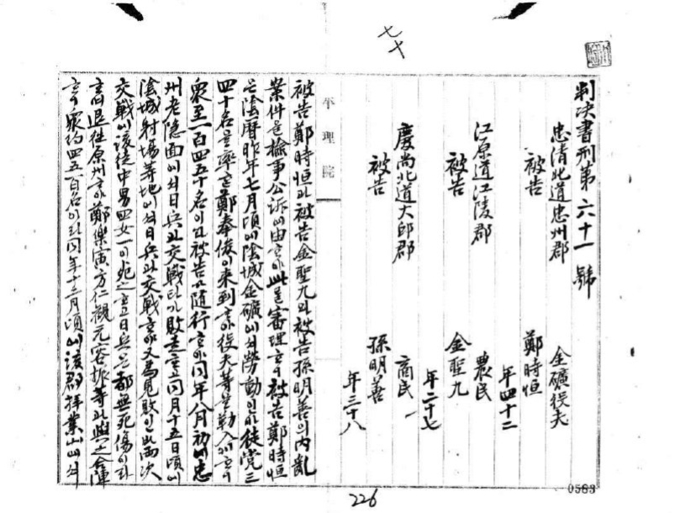 七十
判决書刑第六十一號
忠清北道忠州郡 金礦役夫
被告 鄭時恒
年四十二
江原道江陵郡 農民
被告 金聖九
年二十七
慶尙北道大邱郡 商民
被告 孫明善
年三十八
平理院
被告鄭時恒과被告金聖九와被告孫明善의內亂
案件을檢事公訴에由하야此를審理하니被告鄭時恒
은陰曆昨年七月頃에陰城金礦에셔勞動이바徒黨三
四十名을率한鄭奉俊이來到하야役夫等을勒入하니
衆至一百四五十名이라被告가隨行하야同年八月初에忠
州老隱面에셔日兵과交戰타가敗走하고同月十五日頃에
陰城射場等地에셔日兵과交戰하야又爲見敗인바兩次
交戰에該徒中男四女一이死之하고日兵은都無死傷이라
하고退往原州하야鄭樂寅方仁觀元容振等과與之合陣
하니衆約四五百名이라同年十二月頃에該郡拜業山에셔
226
0583